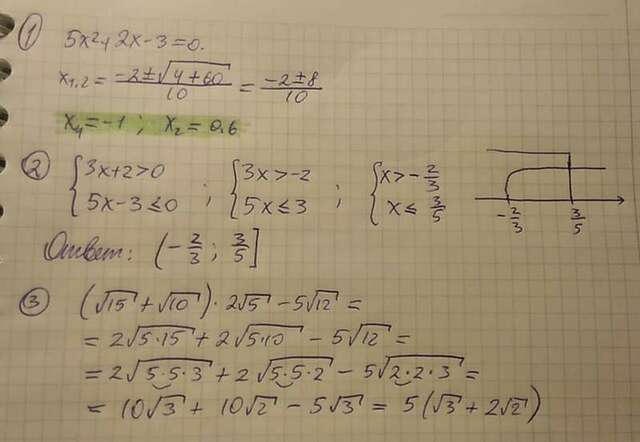 1
5x²+2x-3=0.
x₁,₂ = (-2±√(4+60))/10 = (-2±8)/10
x₁=-1 ; x₂=0.6
2
{3x+2>0 ; {3x>-2 ; {x>-2/3
{5x-3≤0 ; {5x≤3 ; {x≤3/5
-2/3 3/5
Ответ: (-2/3 ; 3/5]
3
(√15+√10)·2√5-5√12=
=2√(5·15)+2√(5·10)-5√12=
=2√(5·5·3)+2√(5·5·2)-5√(2·2·3)=
=10√3+10√2-5√3=5(√3+2√2)